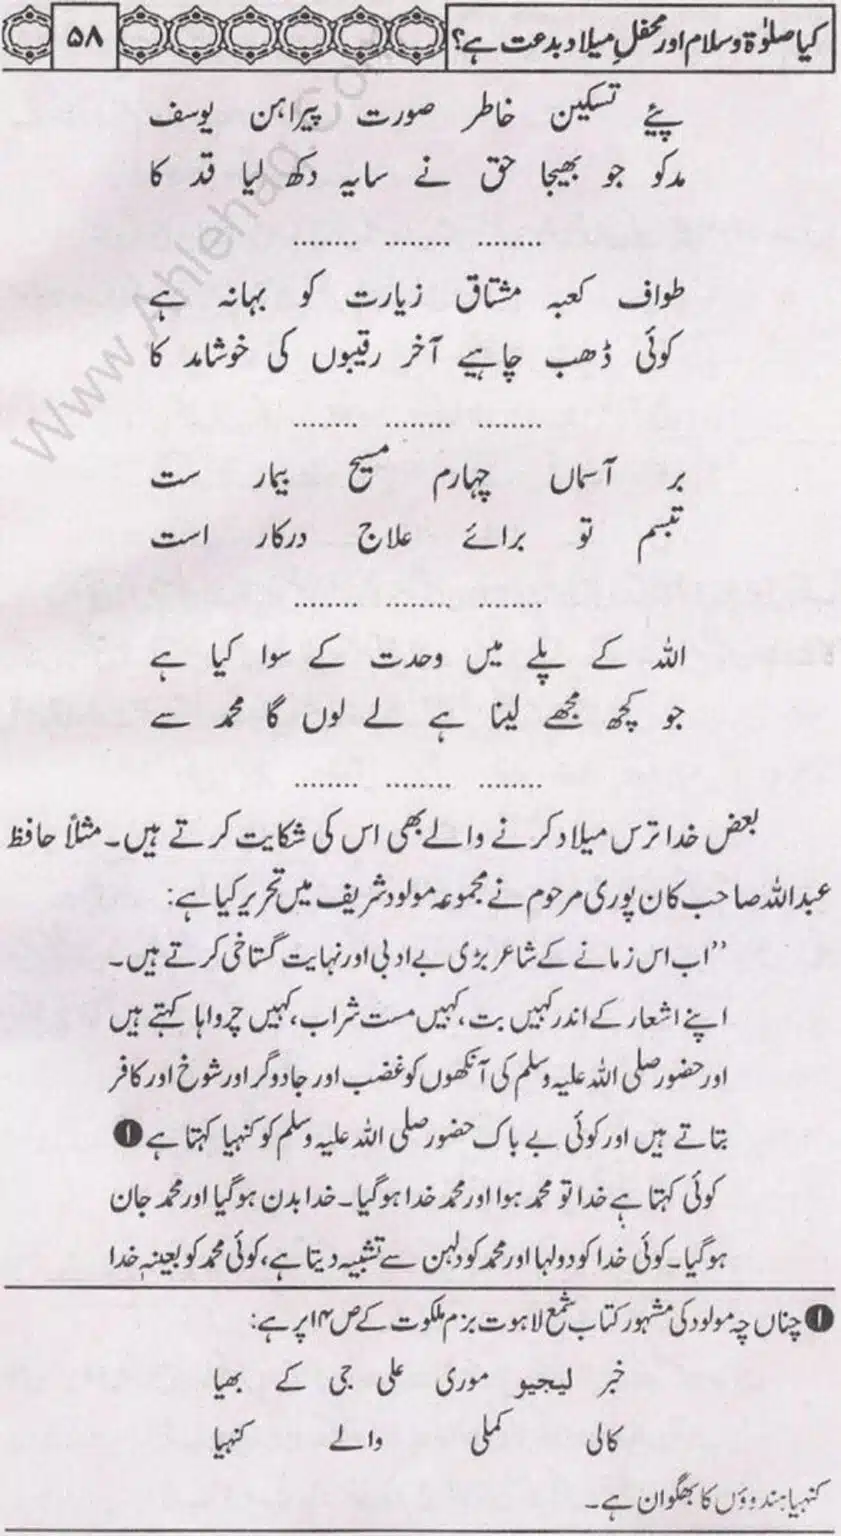 کیا صلوٰۃ و سلام اور محفلِ میلاد بدعت ہے؟ ۵۸
پئے تسکین خاطر صورت پیراہن یوسف
مدکو جو بھیجا حق نے سایہ دکھ لیا قد کا
........ ........ ........
طواف کعبہ مشتاق زیارت کو بہانہ ہے
کوئی ڈھب چاہیے آخر رقیبوں کی خوشامد کا
........ ........ ........
بر آسماں چہارم مسیح بیمار ست
تبسم تو برائے علاج درکار است
........ ........ ........
اللہ کے پلے میں وحدت کے سوا کیا ہے
جو کچھ مجھے لینا ہے لے لوں گا محمد سے
........ ........ ........
بعض خدا ترس میلاد کرنے والے بھی اس کی شکایت کرتے ہیں۔ مثلاً حافظ
عبداللہ صاحب کان پوری مرحوم نے مجموعہ مولود شریف میں تحریر کیا ہے:
’’اب اس زمانے کے شاعر بڑی بے ادبی اور نہایت گستاخی کرتے ہیں۔
اپنے اشعار کے اندر کہیں بت، کہیں مست شراب، کہیں چرواہا کہتے ہیں
اور حضور صلی اللہ علیہ وسلم کی آنکھوں کو غضب اور جادوگر اور شوخ اور کافر
بتاتے ہیں اور کوئی بے باک حضور صلی اللہ علیہ وسلم کو کنہیا کہتا ہے ❶
کوئی کہتا ہے خدا تو محمد ہوا اور محمد خدا ہوگیا۔ خدا بدن ہوگیا اور محمد جان
ہوگیا۔ کوئی خدا کو دولہا اور محمد کو دلہن سے تشبیہ دیتا ہے، کوئی محمد کو بعینہٖ خدا
❶ چناں چہ مولود کی مشہور کتاب شمع لاہوت بزم ملکوت کے ص۱۴ پر ہے:
خبر لیجیو موری علی جی کے بھیا
کالی کملی والے کنہیا
کنہیا ہندوؤں کا بھگوان ہے۔
www.Ahlehaq.Com